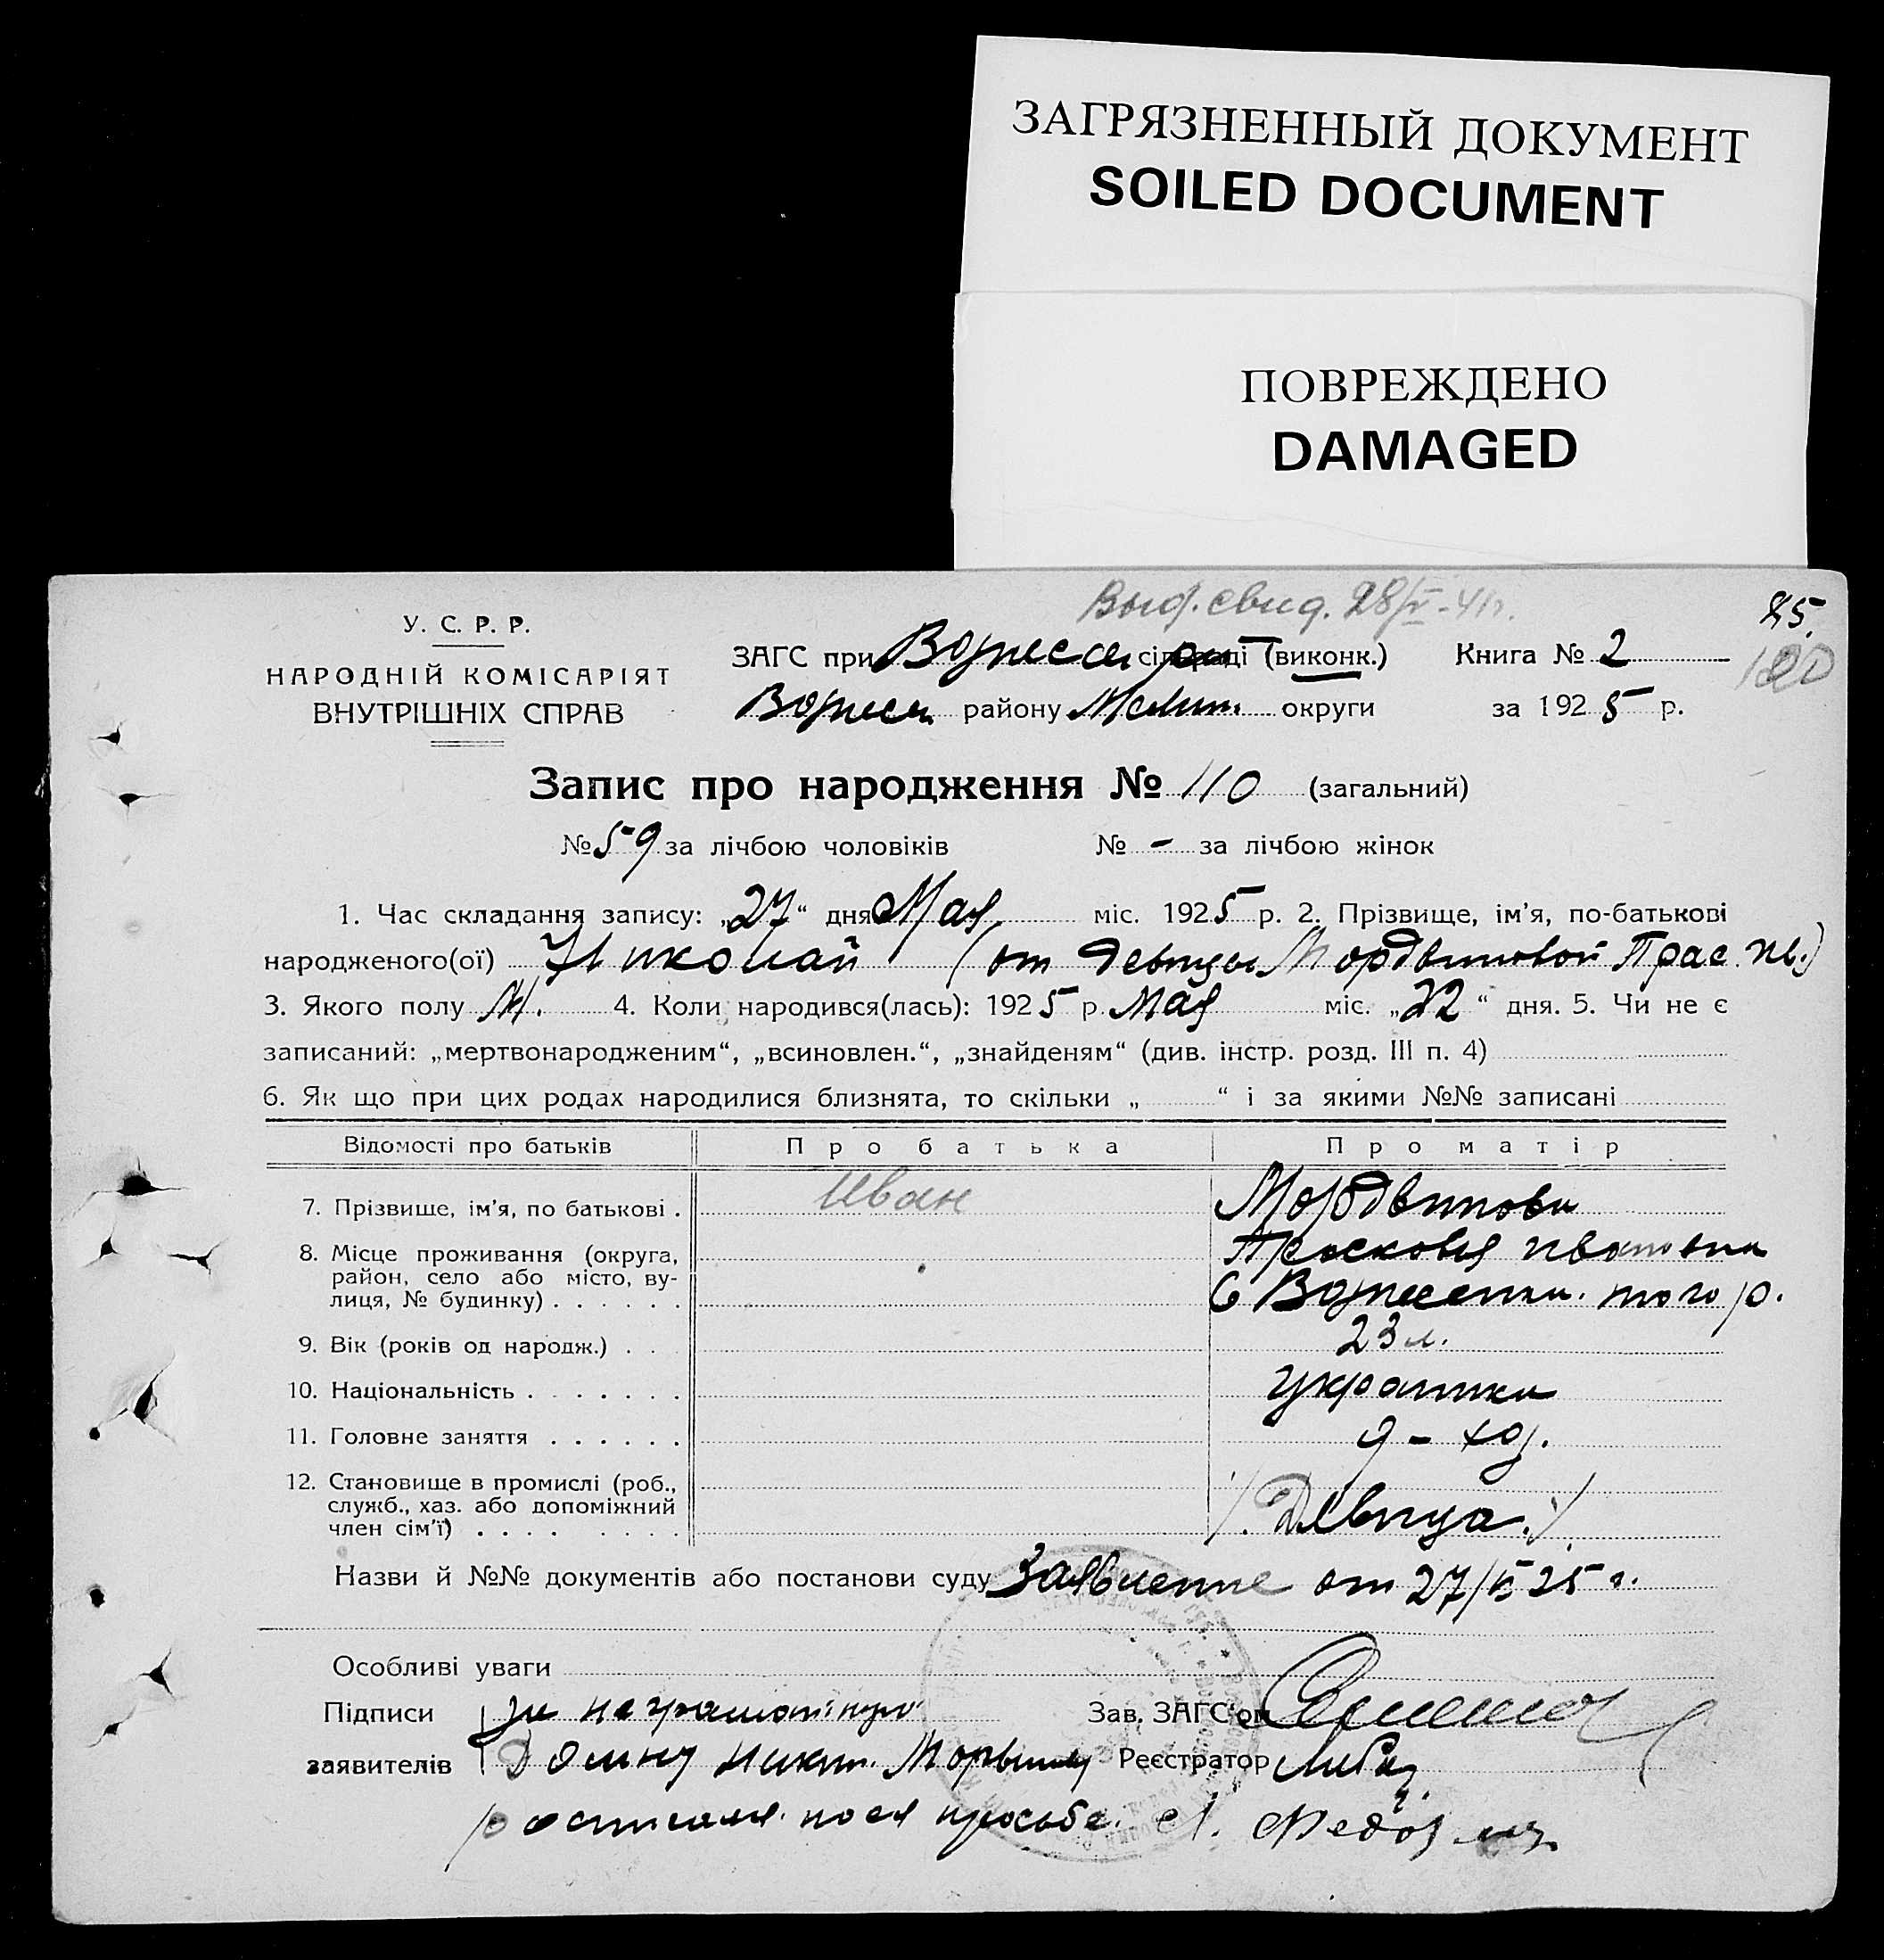 ЗАГРЯЗНЕННЫЙ ДОКУМЕНТ
SOILED DOCUMENT
ПОВРЕЖДЕНО
DAMAGED
Выд. свид. 28/V-41г.
85.
120
У. С. Р. Р.
НАРОДНІЙ КОМІСАРІЯТ
ВНУТРІШНІХ СПРАВ
ЗАГС при Вознесен сільраді (виконк.) Книга № 2
Вознесен району Мелит. округи за 1925 р.
Запис про народження № 110 (загальний)
№ 59 за лічбою чоловіків № - за лічбою жінок
1. Час складання запису: „27“ дня Мая міс. 1925 р. 2. Прізвище, ім'я, по-батькові
народженого(ої) Николай (от девицы Мордвиновой Прас. Ив.)
3. Якого полу М. 4. Коли народився(лась): 1925 р. Мая міс. „22“ дня. 5. Чи не є
записаний: „мертвонародженим“, „всиновлен.“, „знайденям“ (див. інстр. розд. III п. 4)
6. Як що при цих родах народилися близнята, то скільки „ “ і за якими №№ записані
Відомості про батьків Про батька Про матір
7. Прізвище, ім'я, по батькові . Иван Мордвинова
8. Місце проживання (округа, Прасковья Ивановна
район, село або місто, ву-
лиця, № будинку) . . . . . . С Вознесенка того р.
9. Вік (років од народж.) . . 23 л.
10. Національність . . . . . . . украинка
11. Головне заняття . . . . . . д-хоз.
12. Становище в промислі (роб.,
служб., хаз. або допоміжний /.Девица./
член сім'ї) . . . . . . . .
Назви й №№ документів або постанови суду Заявление от 27/V 25 г.
Особливі уваги
Підписи за неграмотную Зав. ЗАГС'ом
заявителів Домну Никит. Реєстратор
росписался по ея просьбе